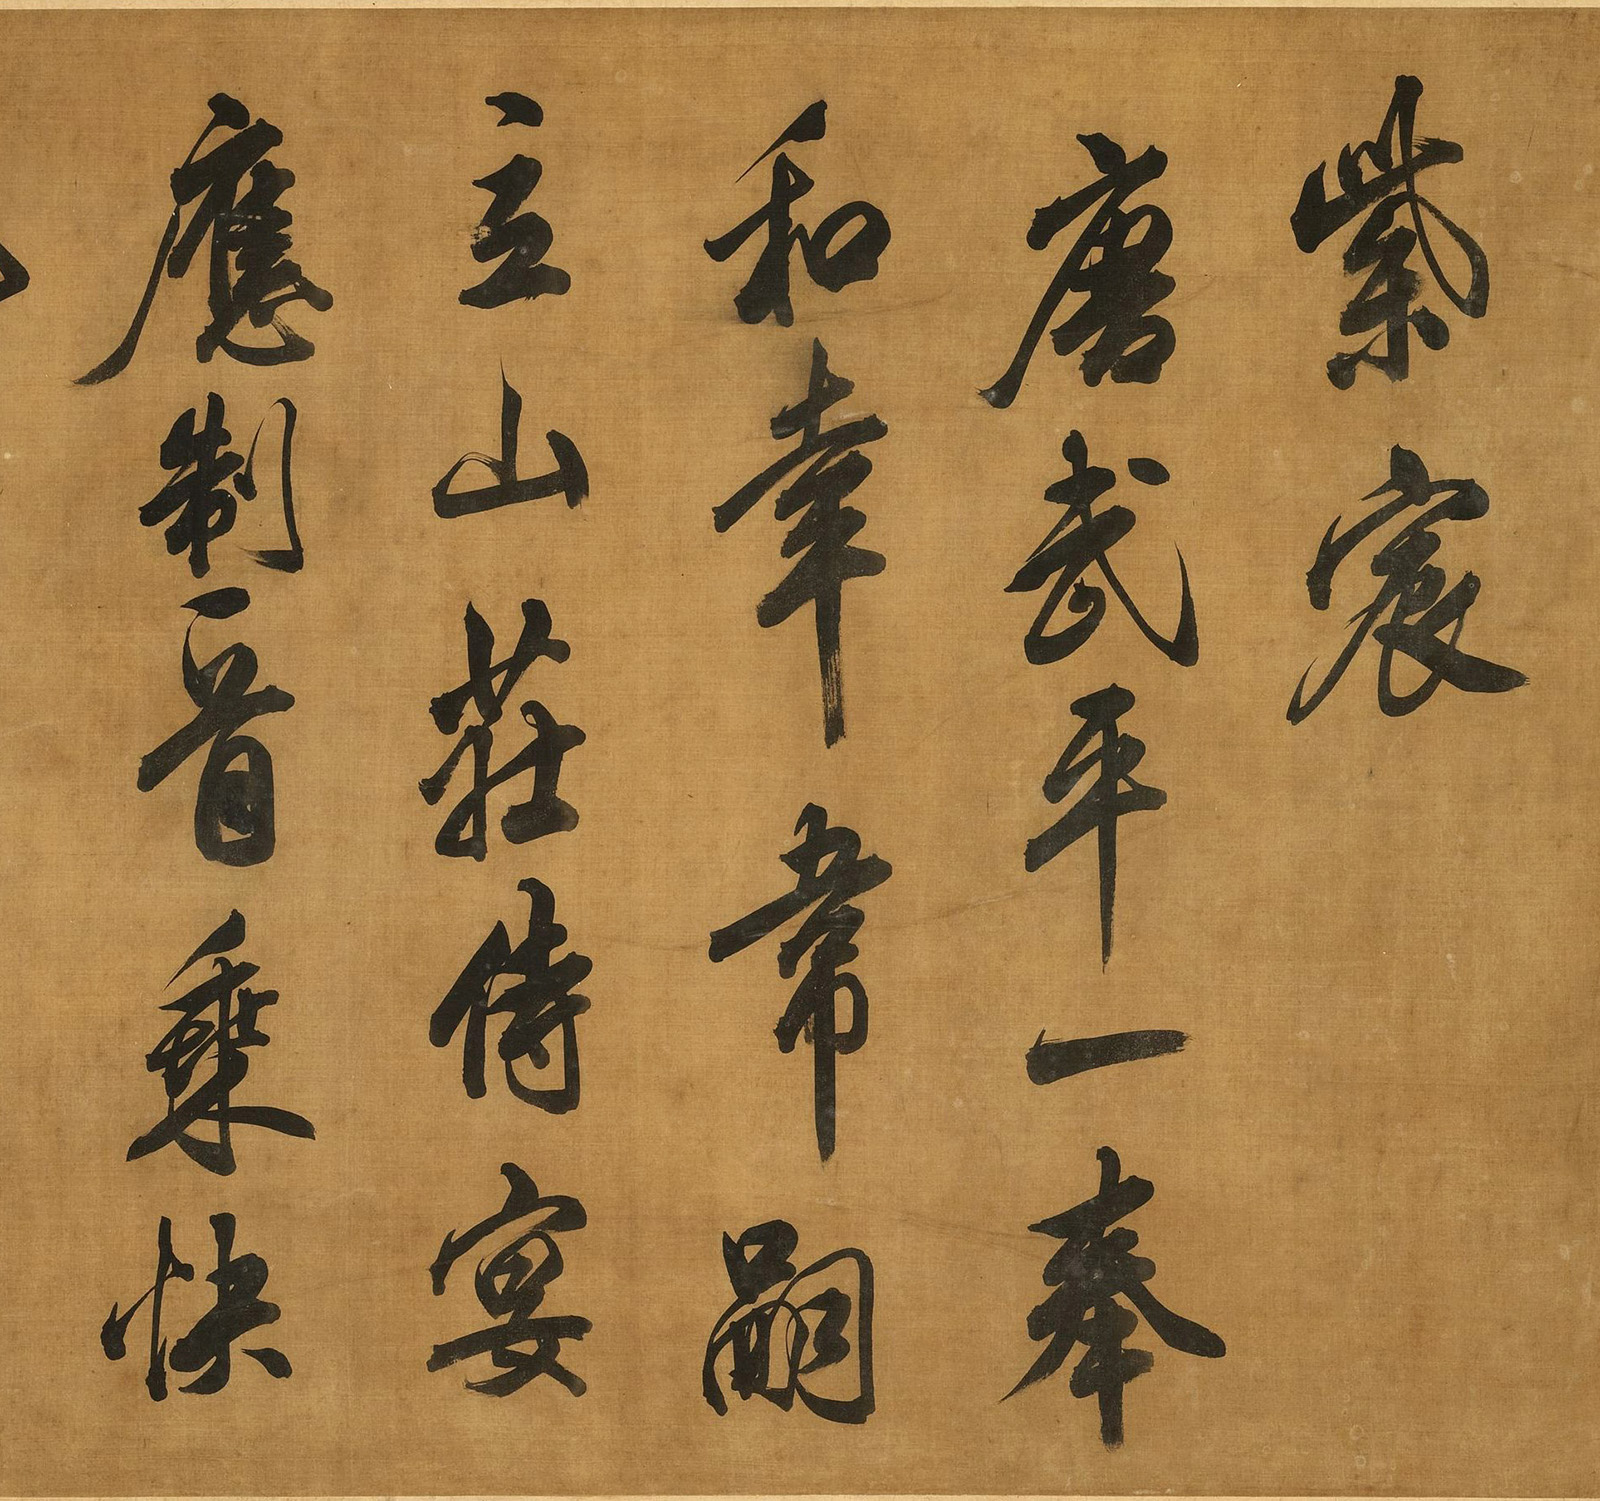 紫宸
唐武平一奉
和幸韋嗣
立山莊侍宴
應制一首乘快